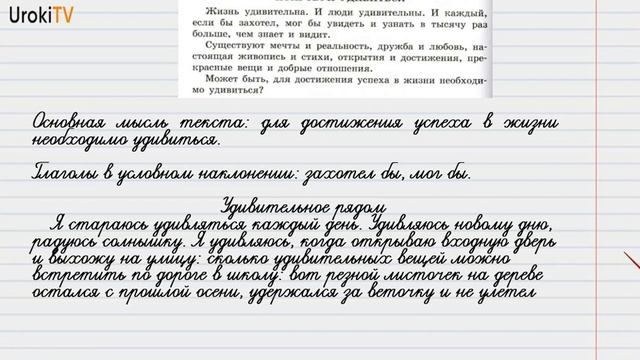 UrokiTV
Жизнь удивительна. И люди удивительны. И каждый,
если бы захотел, мог бы увидеть и узнать в тысячу раз
больше, чем знает и видит.
Существуют мечты и реальность, дружба и любовь, на-
стоящая живопись и стихи, открытия и достижения, пре-
красные вещи и добрые отношения.
Может быть, для достижения успеха в жизни необходи-
мо удивиться?
Основная мысль текста: для достижения успеха в жизни
необходимо удивиться.
Глаголы в условном наклонении: захотел бы, мог бы.
Удивительное рядом
Я стараюсь удивляться каждый день. Удивляюсь новому дню,
радуюсь солнышку. Я удивляюсь, когда открываю входную дверь
и выхожу на улицу: сколько удивительных вещей можно
встретить по дороге в школу: вот резной листочек на дереве
остался с прошлой осени, удержался за веточку и не улетел